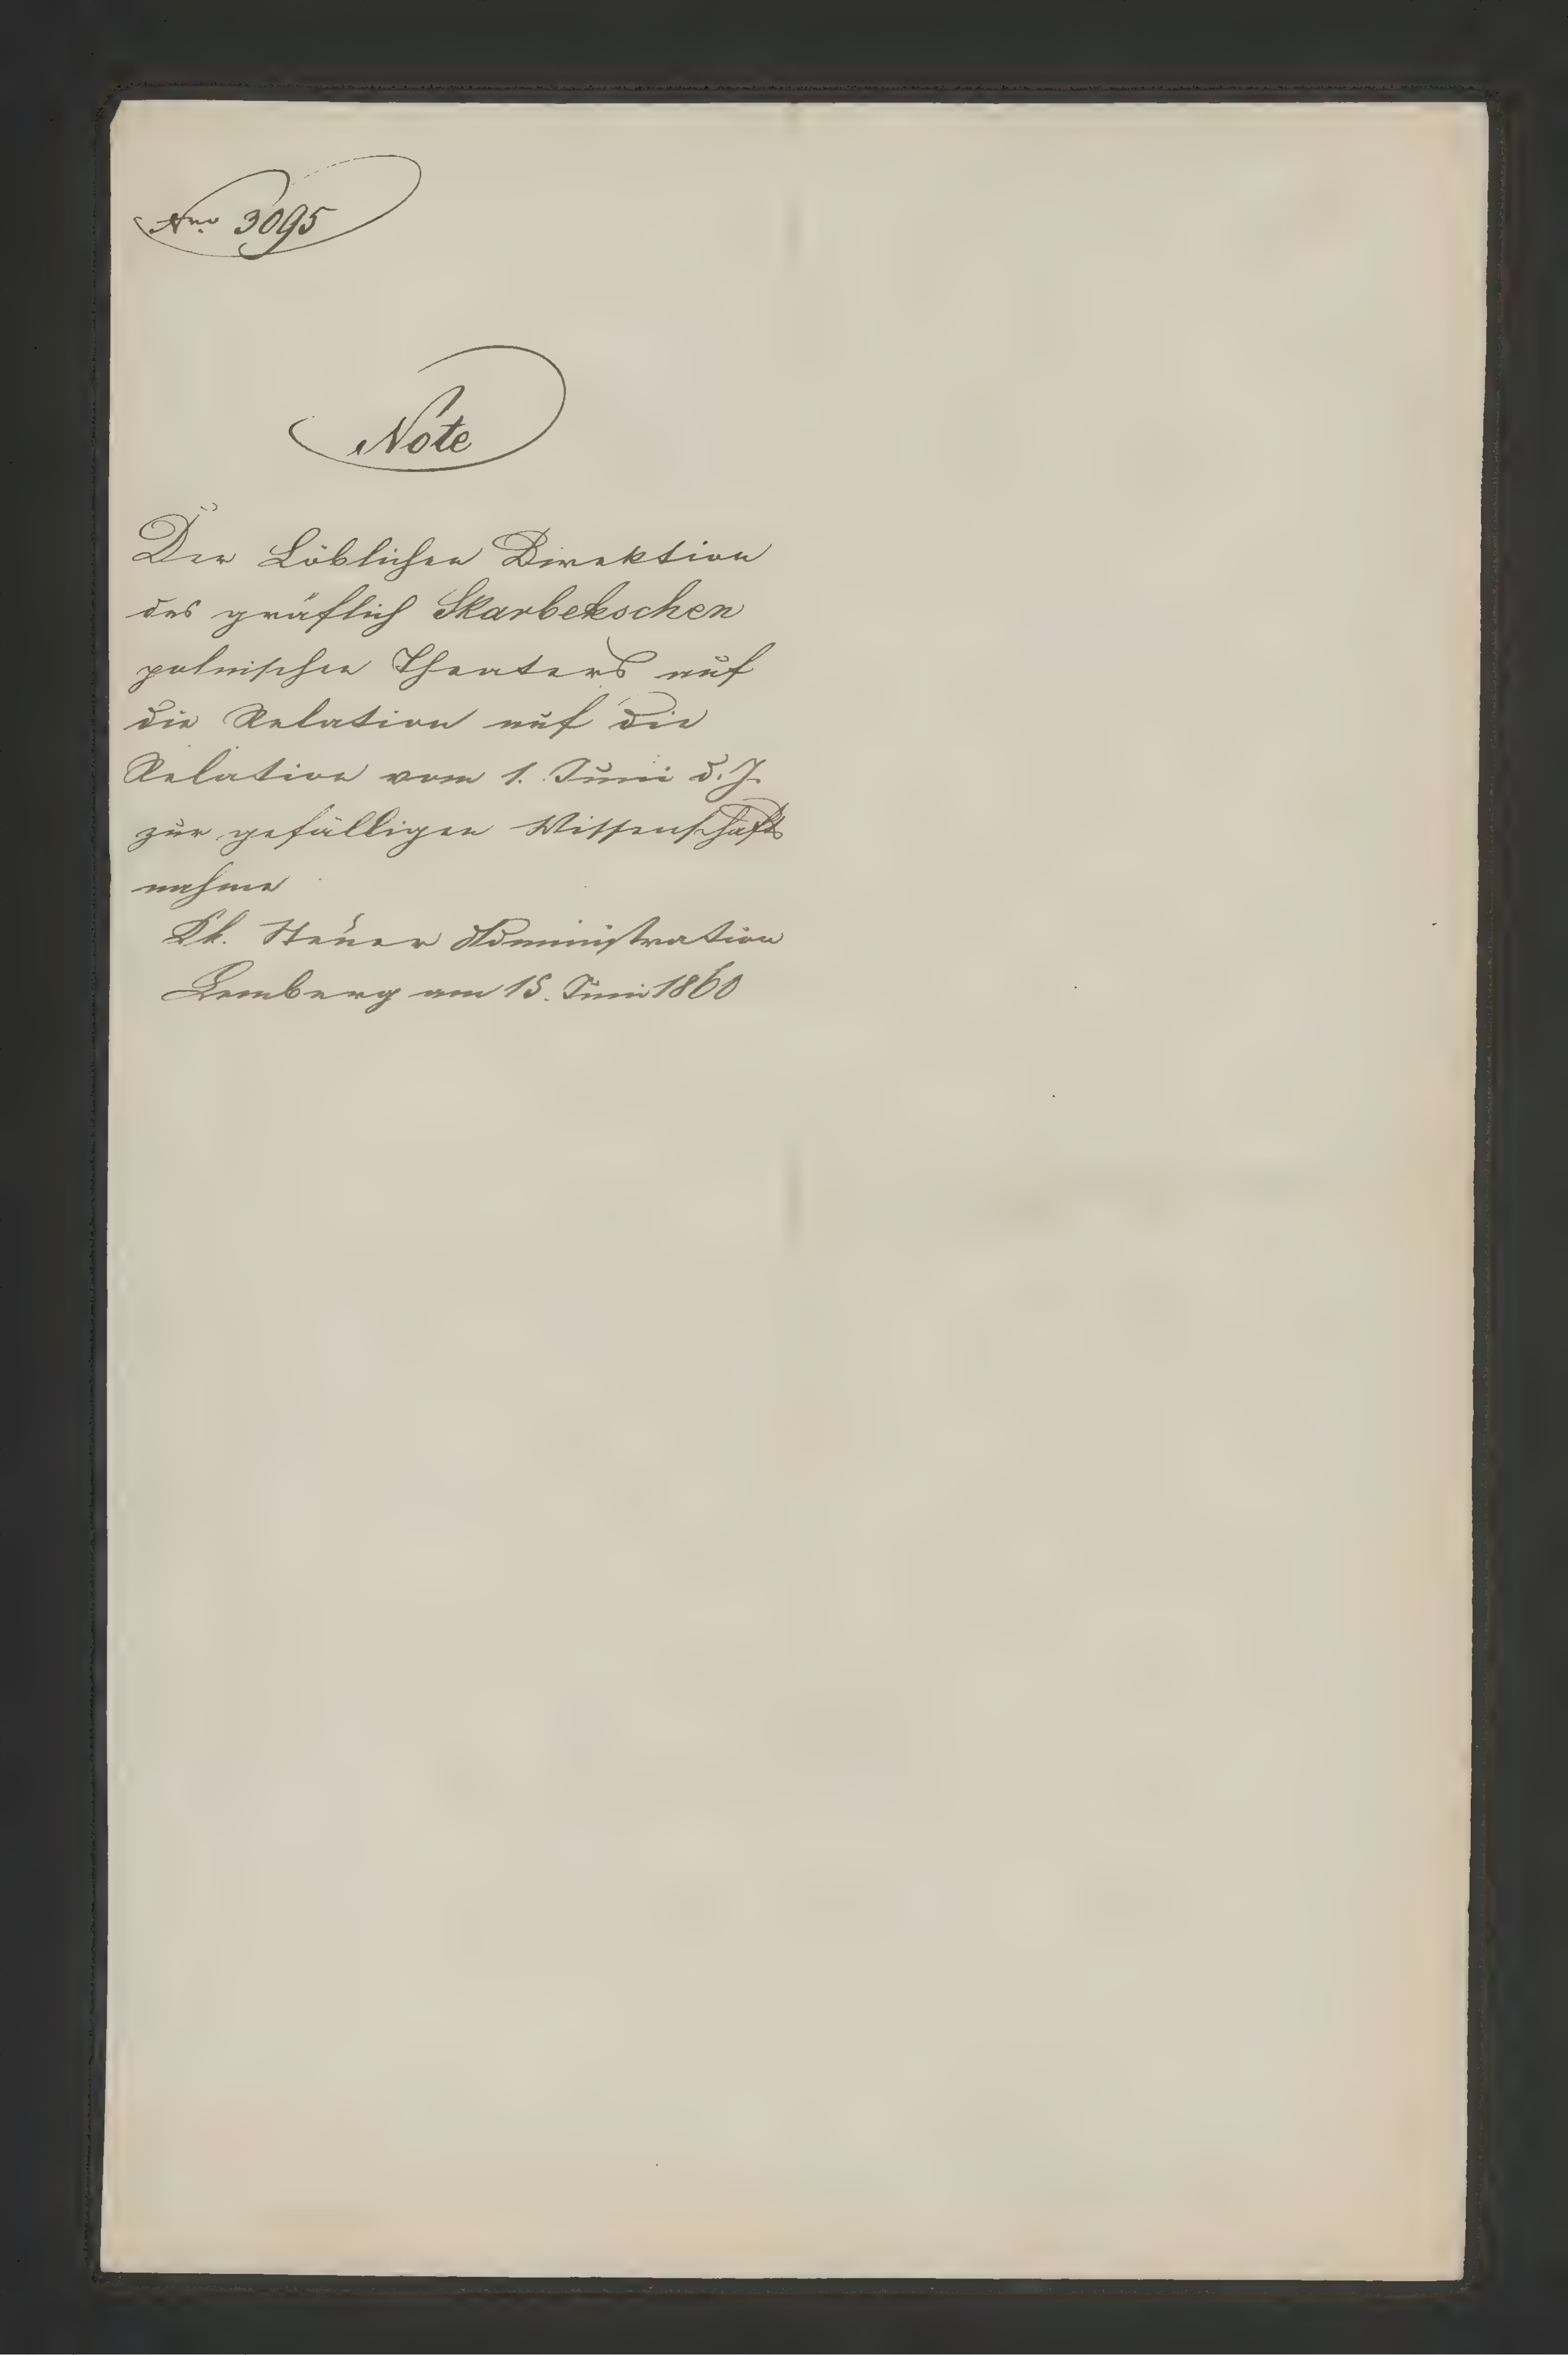 Nro 3095
Note
Der Löblichen Direktion
des gräflich Skarbekschen
polnischen Theaters auf
die Relation auf die
Relation vom 1. Juni d. J.
zur gefälligen Wissenschafts
nahme
Kk. Steuer Administration
Lemberg am 15. Juni 1860